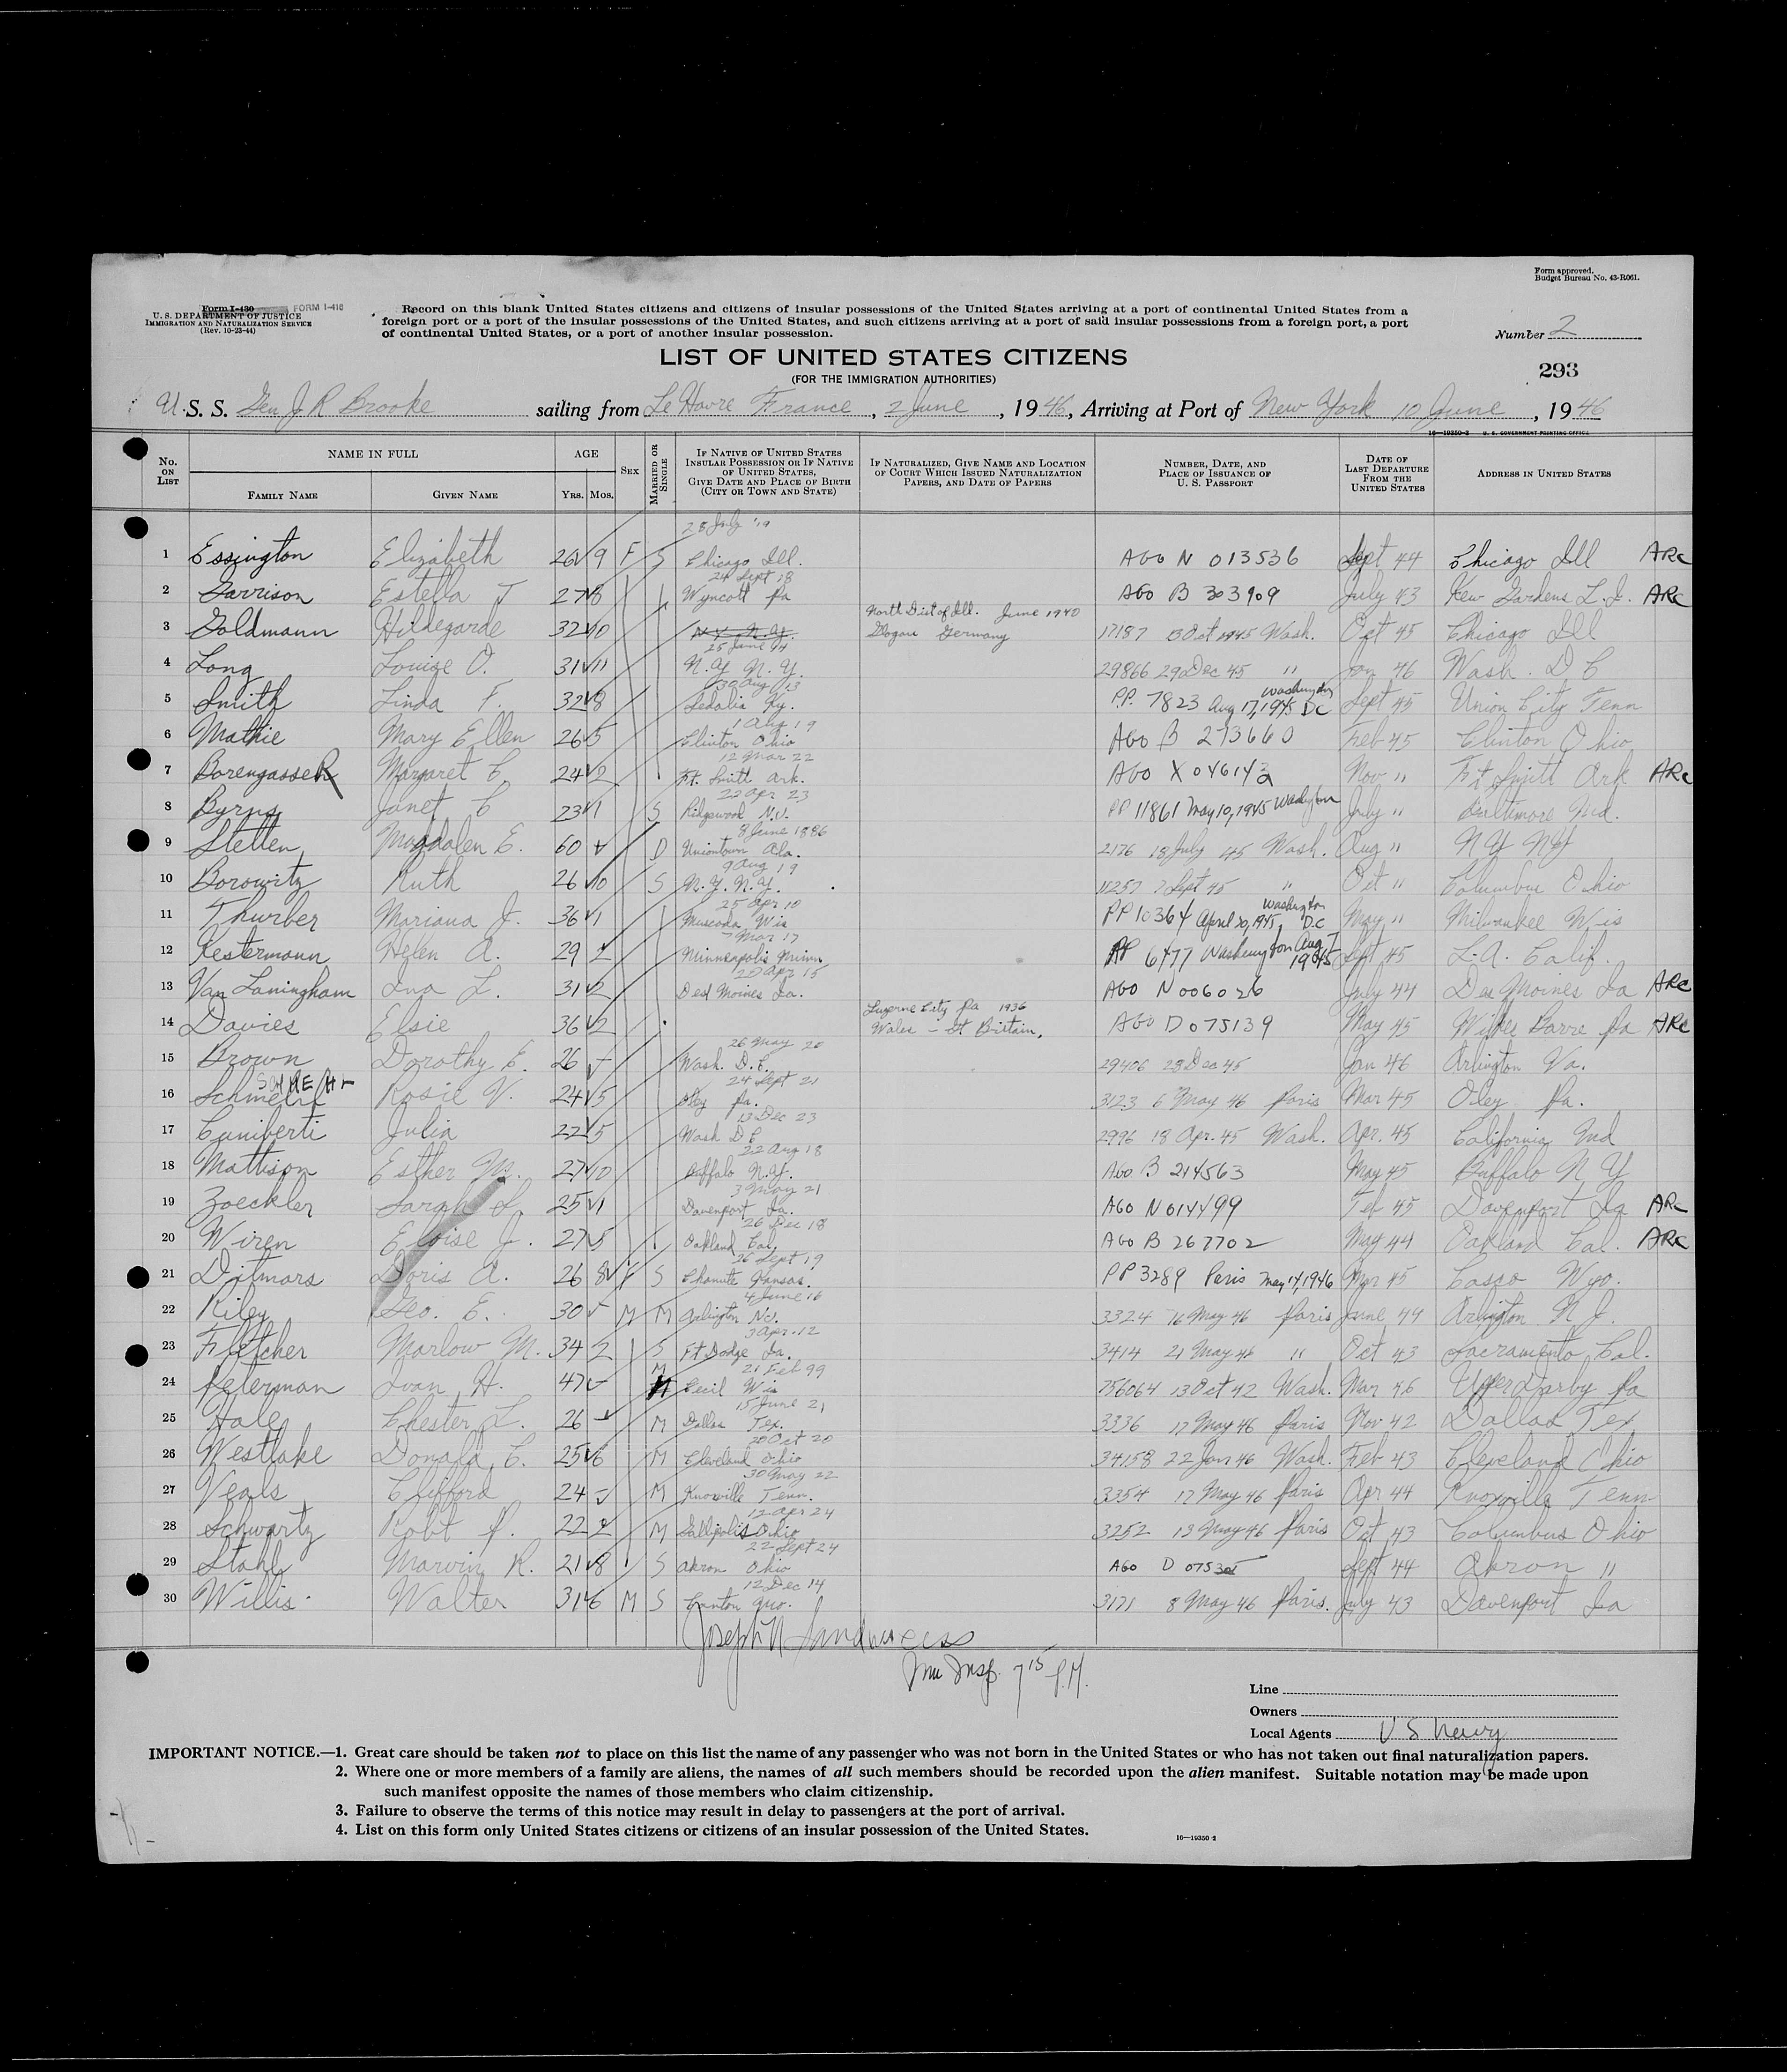 Form approved.
Budget Bureau No. 43-R061.
Form I-430 FORM I-418
U. S. DEPARTMENT OF JUSTICE
IMMIGRATION AND NATURALIZATION SERVICE
(Rev. 10-23-44)
Record on this blank United States citizens and citizens of insular possessions of the United States arriving at a port of continental United States from a
foreign port or a port of the insular possessions of the United States, and such citizens arriving at a port of said insular possessions from a foreign port, a port
of continental United States, or a port of another insular possession.
Number 2
LIST OF UNITED STATES CITIZENS
(FOR THE IMMIGRATION AUTHORITIES)
293
U. S. S. Gen J R Brooke sailing from Le Havre France, 2 June, 1946, Arriving at Port of New York 10 June, 1946
16—19350-2 U. S. GOVERNMENT PRINTING OFFICE
No. ON LIST
NAME IN FULL
FAMILY NAME
GIVEN NAME
AGE
Yrs. Mos.
SEX
MARRIED OR SINGLE
IF NATIVE OF UNITED STATES INSULAR POSSESSION OR IF NATIVE OF UNITED STATES, GIVE DATE AND PLACE OF BIRTH (CITY OR TOWN AND STATE)
IF NATURALIZED, GIVE NAME AND LOCATION OF COURT WHICH ISSUED NATURALIZATION PAPERS, AND DATE OF PAPERS
NUMBER, DATE, AND PLACE OF ISSUANCE OF U. S. PASSPORT
DATE OF LAST DEPARTURE FROM THE UNITED STATES
ADDRESS IN UNITED STATES
28 July '19
1 Essington Elizabeth 26 9 F S Chicago Ill. AGO N 013536 Sept 44 Chicago Ill ARC
24 Sept 18
2 Garrison Estella J 27 8 Wyncott Pa AGO B 303909 July 43 Kew Gardens L.I. ARC
North Dist of Ill. June 1940
3 Goldmann Hildegarde 32 10 N.Y. N.Y. Glogau Germany 17187 13 Oct 1945 Wash. Oct 45 Chicago Ill
25 June 14
4 Long Louise O. 31 11 N.Y. N.Y. 29866 29 Dec 45 " Jan 46 Wash. D C
30 Aug 13
5 Smith Linda F. 32 8 Sedalia Ky. P.P. 7823 Aug 17, 1945 Washington DC Sept 45 Union City Tenn
1 Aug 19
6 Mathie Mary Ellen 26 5 Clinton Ohio AGO B 273660 Feb 45 Clinton Ohio
12 Mar 22
7 Borengasser Margaret C. 24 2 Ft. Smith Ark. AGO X 046142 Nov " Ft Smith Ark ARC
22 Apr 23
8 Byrns Janet C 23 1 S Ridgewood N.J. PP 11861 May 10, 1945 Washington July " Baltimore Md.
8 June 1886
9 Stetten Magdalen E. 60 D Uniontown Ala. 2176 18 July 45 Wash. Aug " N Y N Y
9 Aug 19
10 Borowitz Ruth 26 10 S N.Y. N.Y. 11257 7 Sept 45 " Oct " Columbus Ohio
25 Apr 10
11 Thurber Mariana J. 36 1 Muscoda Wis PP 10364 April 20, 1945, Washington D.C May " Milwaukee Wis
7 Mar 17
12 Kestermann Helen A. 29 2 Minneapolis Minn PP 6477 Washington Aug 7 1945 Sept 45 L.A. Calif.
20 Apr 15
13 Van Laningham Ina L. 31 2 Des Moines Ia. AGO N006026 July 44 Des Moines Ia ARC
Luzerne City Pa 1936
14 Davies Elsie 36 2 Wales - Gt Britain. AGO D 075139 May 45 Wilkes Barre Pa ARC
26 May 20
15 Brown Dorothy E. 26 Wash. D.C. 29406 28 Dec 45 Jan 46 Arlington Va.
24 Sept 21
16 Schmehl Rosie V. 24 5 Oley Pa. 3123 6 May 46 Paris Mar 45 Oley Pa.
13 Dec 23
17 Cuniberti Julia 22 5 Wash D C 2996 18 Apr. 45 Wash. Apr. 45 California Md
22 Aug 18
18 Mattison Esther M. 27 10 Buffalo N.Y. AGO B 214563 May 45 Buffalo N Y
3 May 21
19 Zoeckler Sarah L. 25 1 Davenport Ia. AGO N014499 Feb 45 Davenport Ia ARC
26 Dec 18
20 Wiren Eloise J. 27 5 Oakland Cal. AGO B 267702 May 44 Oakland Cal. ARC
26 Sept 19
21 Ditmars Doris A. 26 8 F S Chanute Kansas. PP 3289 Paris May 14, 1946 Mar 45 Casco Wyo.
4 June 16
22 Riley Geo. E. 30 M M Arlington NJ. 3324 16 May 46 Paris June 44 Arlington N J.
3 Apr. 12
23 Fletcher Marlow M. 34 2 S Ft Dodge Ia. 3414 21 May 46 " Oct 43 Sacramento Cal.
21 Feb 99
24 Peterman Ivan H. 47 M Cecil Wis 756064 13 Oct 42 Wash. Mar 46 Upper Darby Pa
15 June 21
25 Hale Chester L. 26 M Dallas Tex. 3336 17 May 46 Paris Nov 42 Dallas Tex
20 Oct 20
26 Westlake Donald C. 25 6 M Cleveland Ohio 34158 22 Jan 46 Wash. Feb 43 Cleveland Ohio
30 May 22
27 Veals Clifford 24 M Knoxville Tenn. 3354 17 May 46 Paris Apr 44 Knoxville Tenn
12 Apr 24
28 Schwartz Robt P. 22 2 M Gallipolis Ohio 3252 13 May 46 Paris Oct 43 Columbus Ohio
22 Sept 24
29 Stahl Marvin R. 21 8 S Akron Ohio AGO D 075305 Sept 44 Akron "
12 Dec 14
30 Willis Walter 31 6 M S Canton Mo. 3171 8 May 46 Paris. July 43 Davenport Ia
Imm Insp. 7 15 P.M.
Line
Owners
Local Agents U S Navy
IMPORTANT NOTICE.—1. Great care should be taken not to place on this list the name of any passenger who was not born in the United States or who has not taken out final naturalization papers.
2. Where one or more members of a family are aliens, the names of all such members should be recorded upon the alien manifest. Suitable notation may be made upon
such manifest opposite the names of those members who claim citizenship.
3. Failure to observe the terms of this notice may result in delay to passengers at the port of arrival.
4. List on this form only United States citizens or citizens of an insular possession of the United States.
16—19350-2